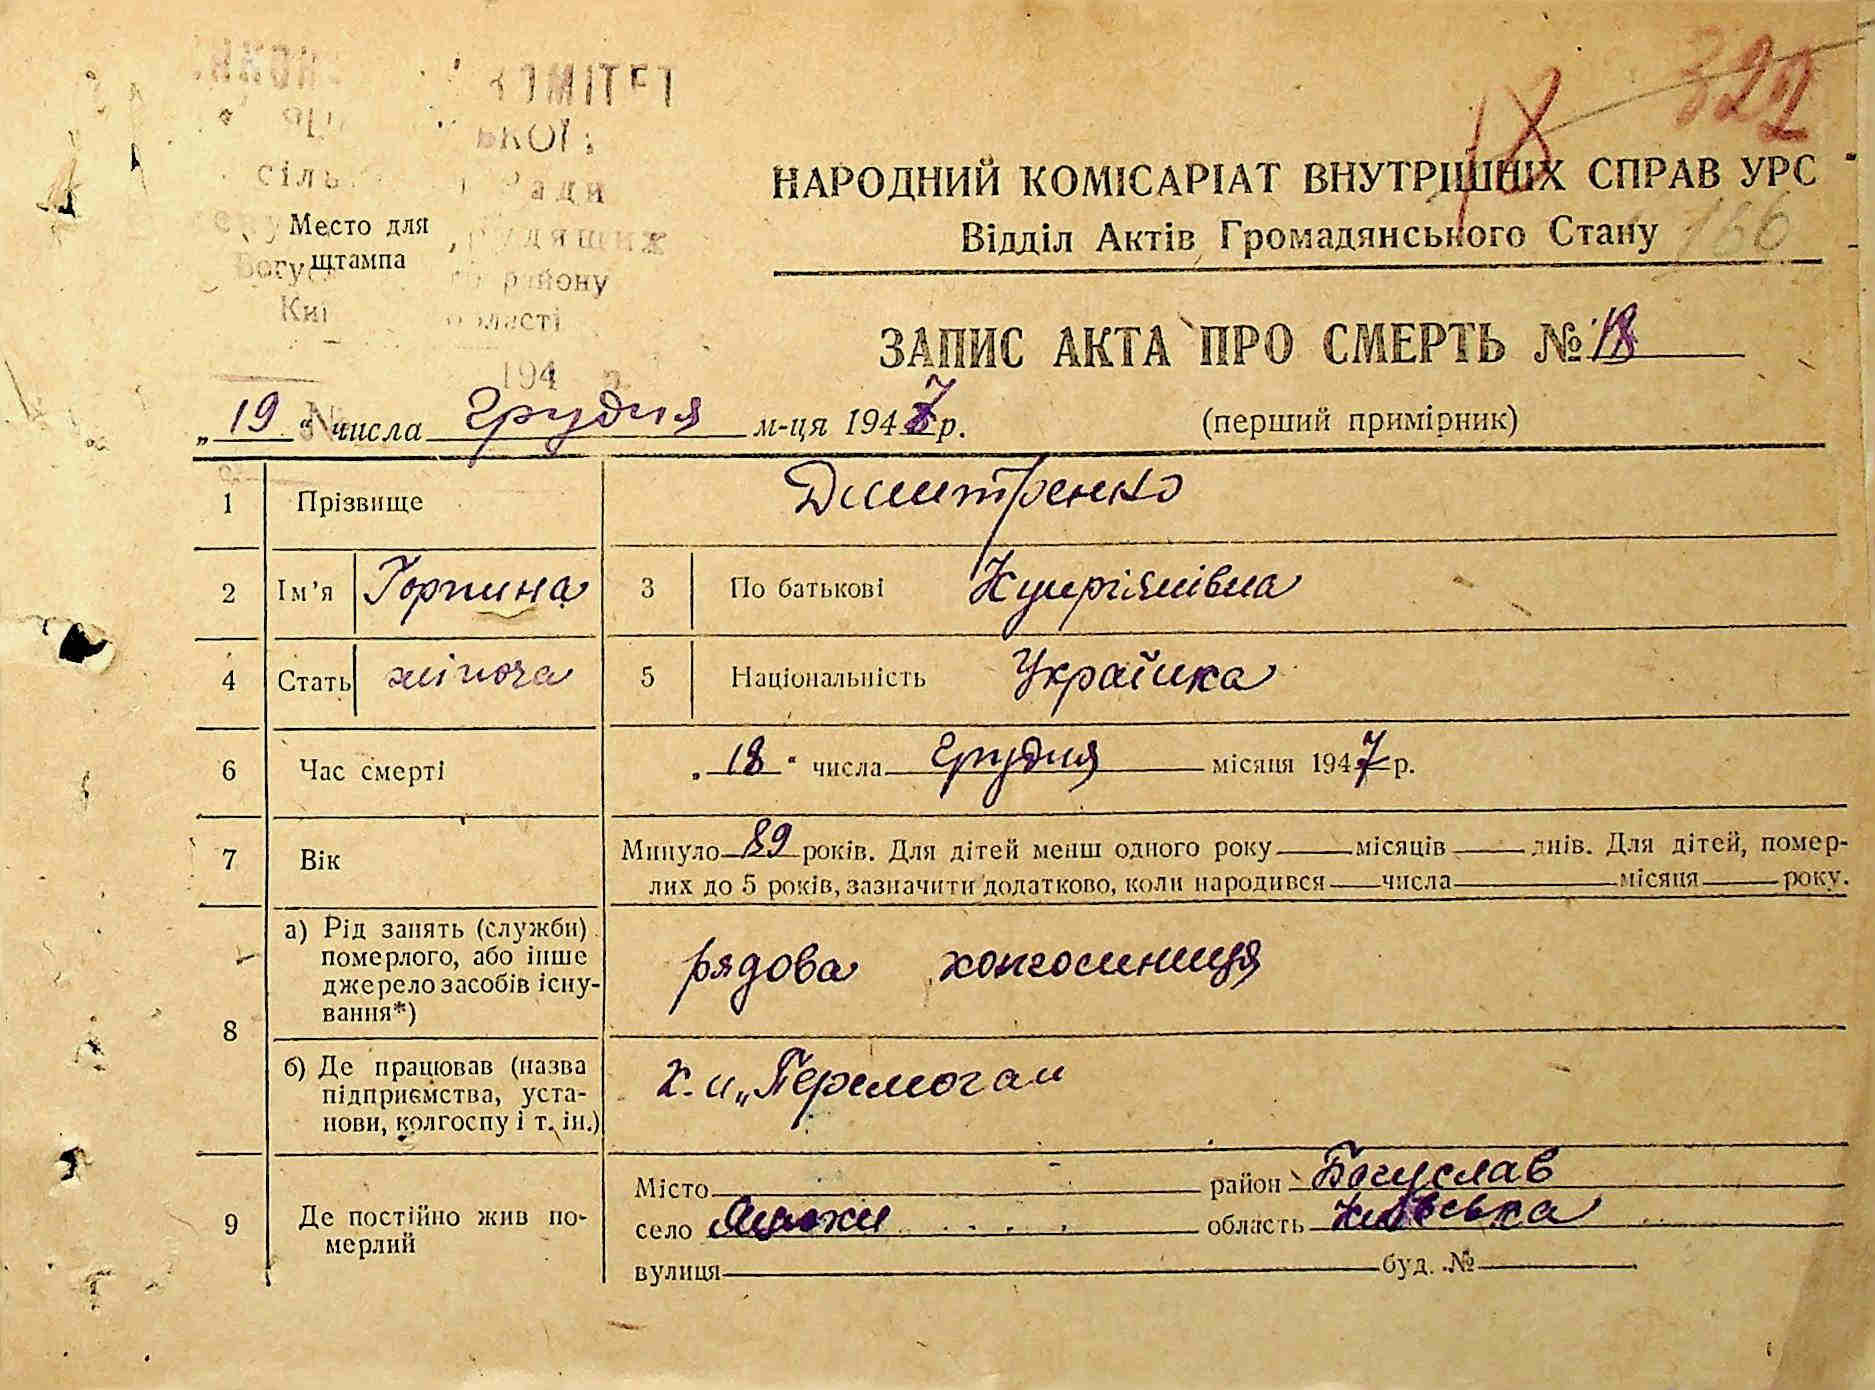 322
18
сіль ади
Богус району
Киї області
194 р.
№
Место для
штампа
НАРОДНИЙ КОМІСАРІАТ ВНУТРІШНІХ СПРАВ УРС
Відділ Актів Громадянського Стану 166
ЗАПИС АКТА ПРО СМЕРТЬ № 18
„19“ числа Грудня м-ця 1947 р. (перший примірник)
1 Прізвище Дмитренко
2 Ім'я Горпина 3 По батькові Купріянівна
4 Стать жіноча 5 Національність Українка
6 Час смерті „18“ числа Грудня місяця 1947 р.
7 Вік Минуло 89 років. Для дітей менш одного року місяців днів. Для дітей, помер-
лих до 5 років, зазначити додатково, коли народився числа місяця року.
8 а) Рід занять (служби)
померлого, або інше
джерело засобів існу-
вання*)
рядова колгосниця
б) Де працював (назва
підприємства, уста-
нови, колгоспу і т. ін.)
к. и „Перемога"
9 Де постійно жив по-
мерлий
Місто район Богуслав
село область Київська
вулиця буд. №